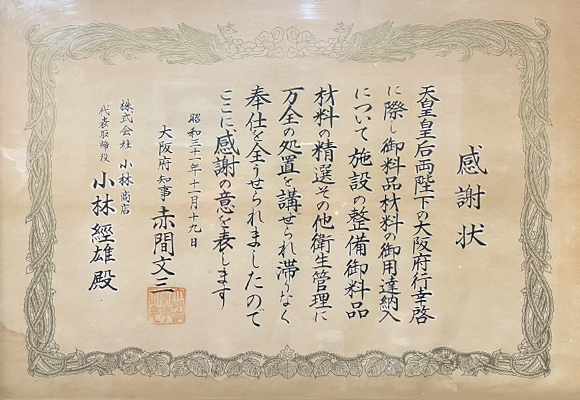 感謝状
天皇皇后両陛下の大阪府行幸啓
に際し御料品材料の御用達納入
について施設の整備御料品
材料の精選その他衛生管理に
万全の処置を講せられ滞りなく
奉仕を全うせられましたので
ここに感謝の意を表します
昭和三十一年十一月十九日
大阪府知事 赤間文三
株式会社 小林商店
代表取締役
小林經雄殿